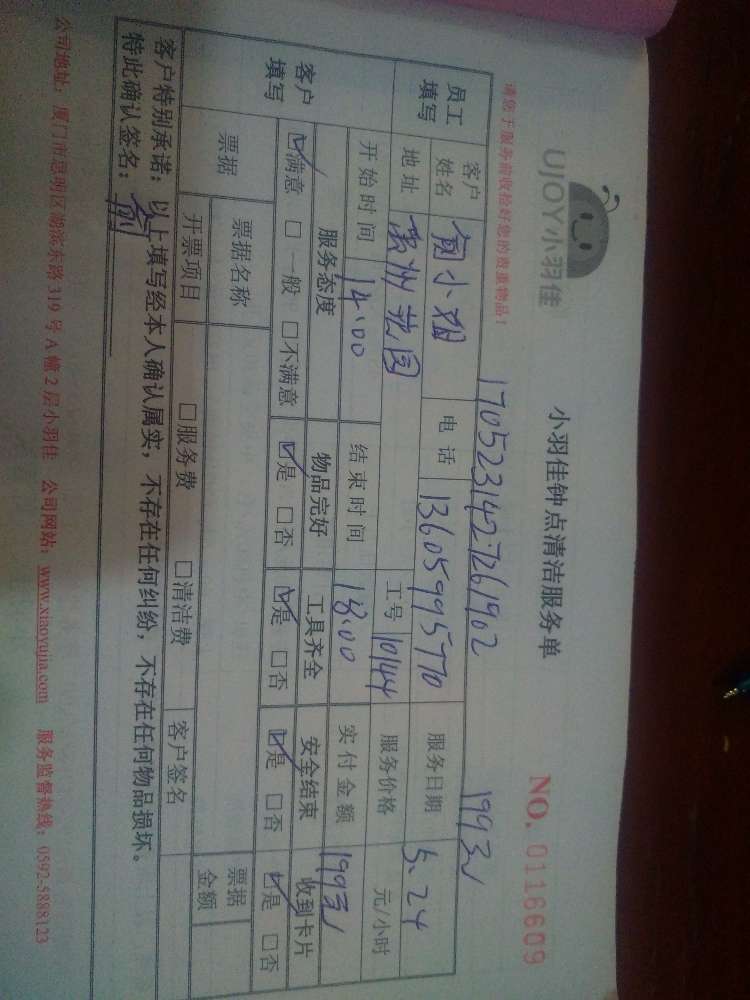 UJOY小羽佳
小羽佳钟点清洁服务单
NO. 0116609
请您于服务前收捡好您的贵重物品！
1705231427261902
1993
员工填写
客户姓名 小姐 电话 13605995770 服务日期 5.24
地址 贵州花园 工号 10144 服务价格 元/小时
开始时间 14:00 结束时间 18:00 实付金额 1993
客户填写
服务态度 物品完好 工具齐全 安全结束 收到卡片
☑满意 □一般 □不满意 ☑是 □否 ☑是 □否 ☑是 □否 ☑是 □否
票据 票据名称 票据金额
开票项目 □服务费 □清洁费 客户签名
客户特别承诺：以上填写经本人确认属实，不存在任何纠纷，不存在任何物品损坏。
特此确认签名：
公司地址：厦门市思明区湖滨东路319号A幢2层小羽佳 公司网站：www.xiaoyujia.com 服务监督热线：0592-5888123